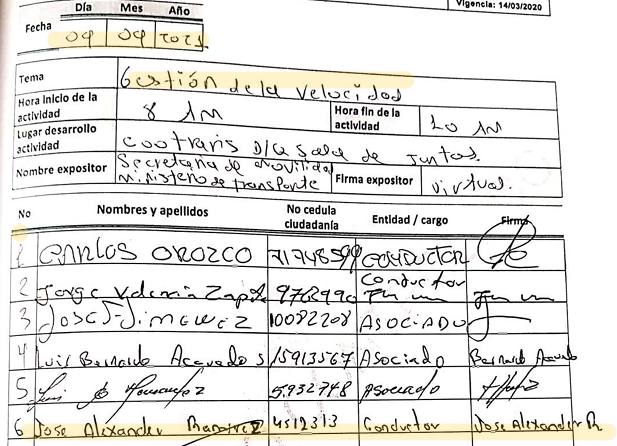 Vigencia: 14/03/2020
Día Mes Año
Fecha 09 09 2021
Tema Gestión de la velocidad
Hora inicio de la actividad 8 AM Hora fin de la actividad 10 AM
Lugar desarrollo actividad cootraris sala de juntas.
Nombre expositor Secretaria de movilidad ministerio de transporte Firma expositor virtual.
No Nombres y apellidos No cedula ciudadanía Entidad / cargo Firma
1 CARLOS OROZCO 71748599 CONDUCTOR
2 Jorge Valencia Zapata Conductor
3 JOSE J. JIMENEZ 10082208 ASOCIADO
4 Luis Bernardo Acevedo S 15913567 Asociado Bernardo Acevedo
5 5.932748 Asociado
6 Jose Alexander Ramirez 4512313 Conductor Jose Alexander R